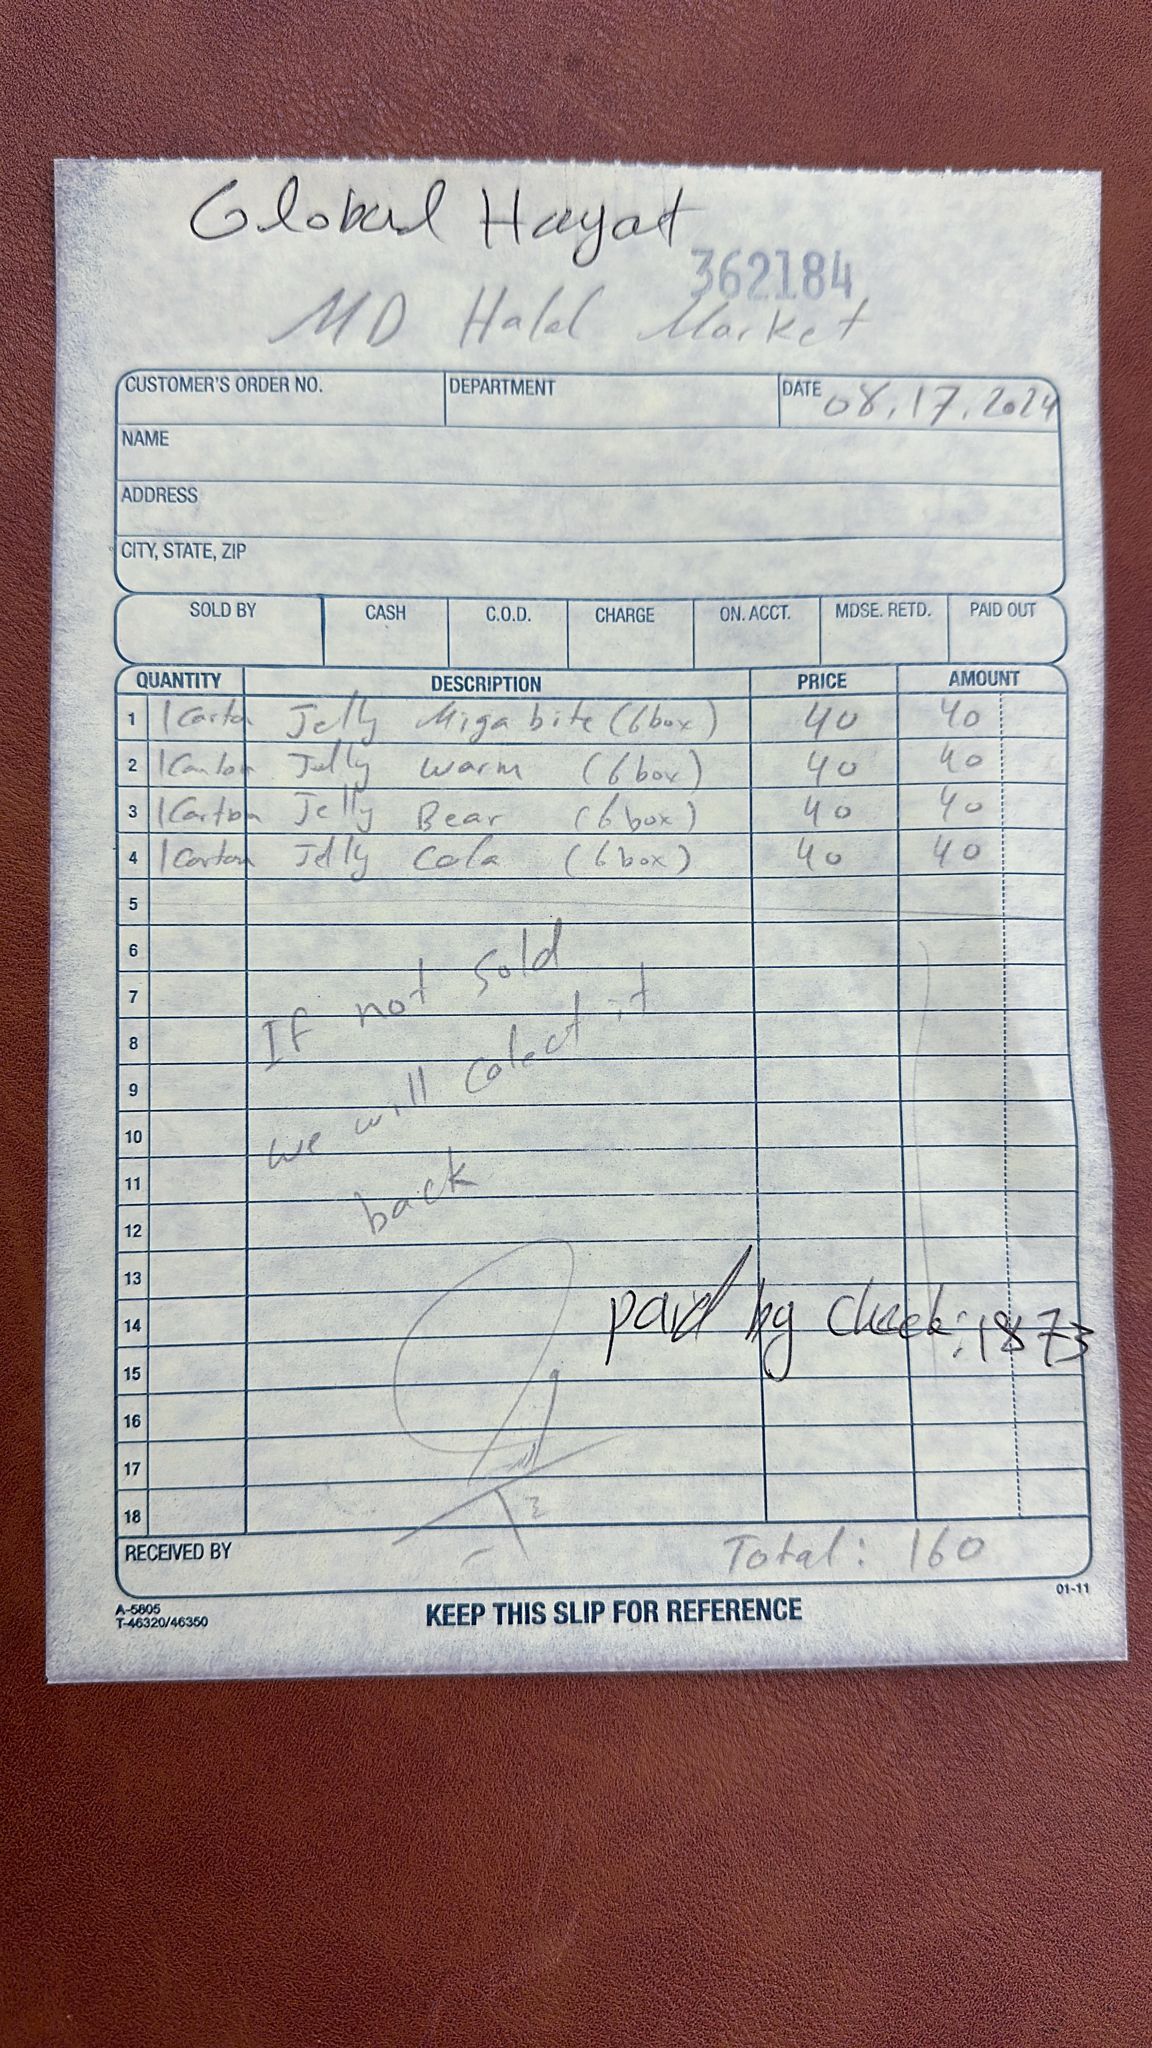 Global Hayat
362184
MD Halal Market
CUSTOMER'S ORDER NO. DEPARTMENT DATE 08.17.2024
NAME
ADDRESS
CITY, STATE, ZIP
SOLD BY CASH C.O.D. CHARGE ON. ACCT. MDSE. RETD. PAID OUT
QUANTITY DESCRIPTION PRICE AMOUNT
1 1 Carton Jelly Miga bite (6 box) 40 40
2 1 Carton Jelly warm (6 box) 40 40
3 1 Carton Jelly Bear (6 box) 40 40
4 1 Carton Jelly Cola (6 box) 40 40
5
6
7
8
9
10
11
12
13
14
15
16
17
18
If not sold
we will colect it
back
paid by check: 1873
RECEIVED BY Total: 160
A-5805
T-46320/46350
KEEP THIS SLIP FOR REFERENCE
01-11